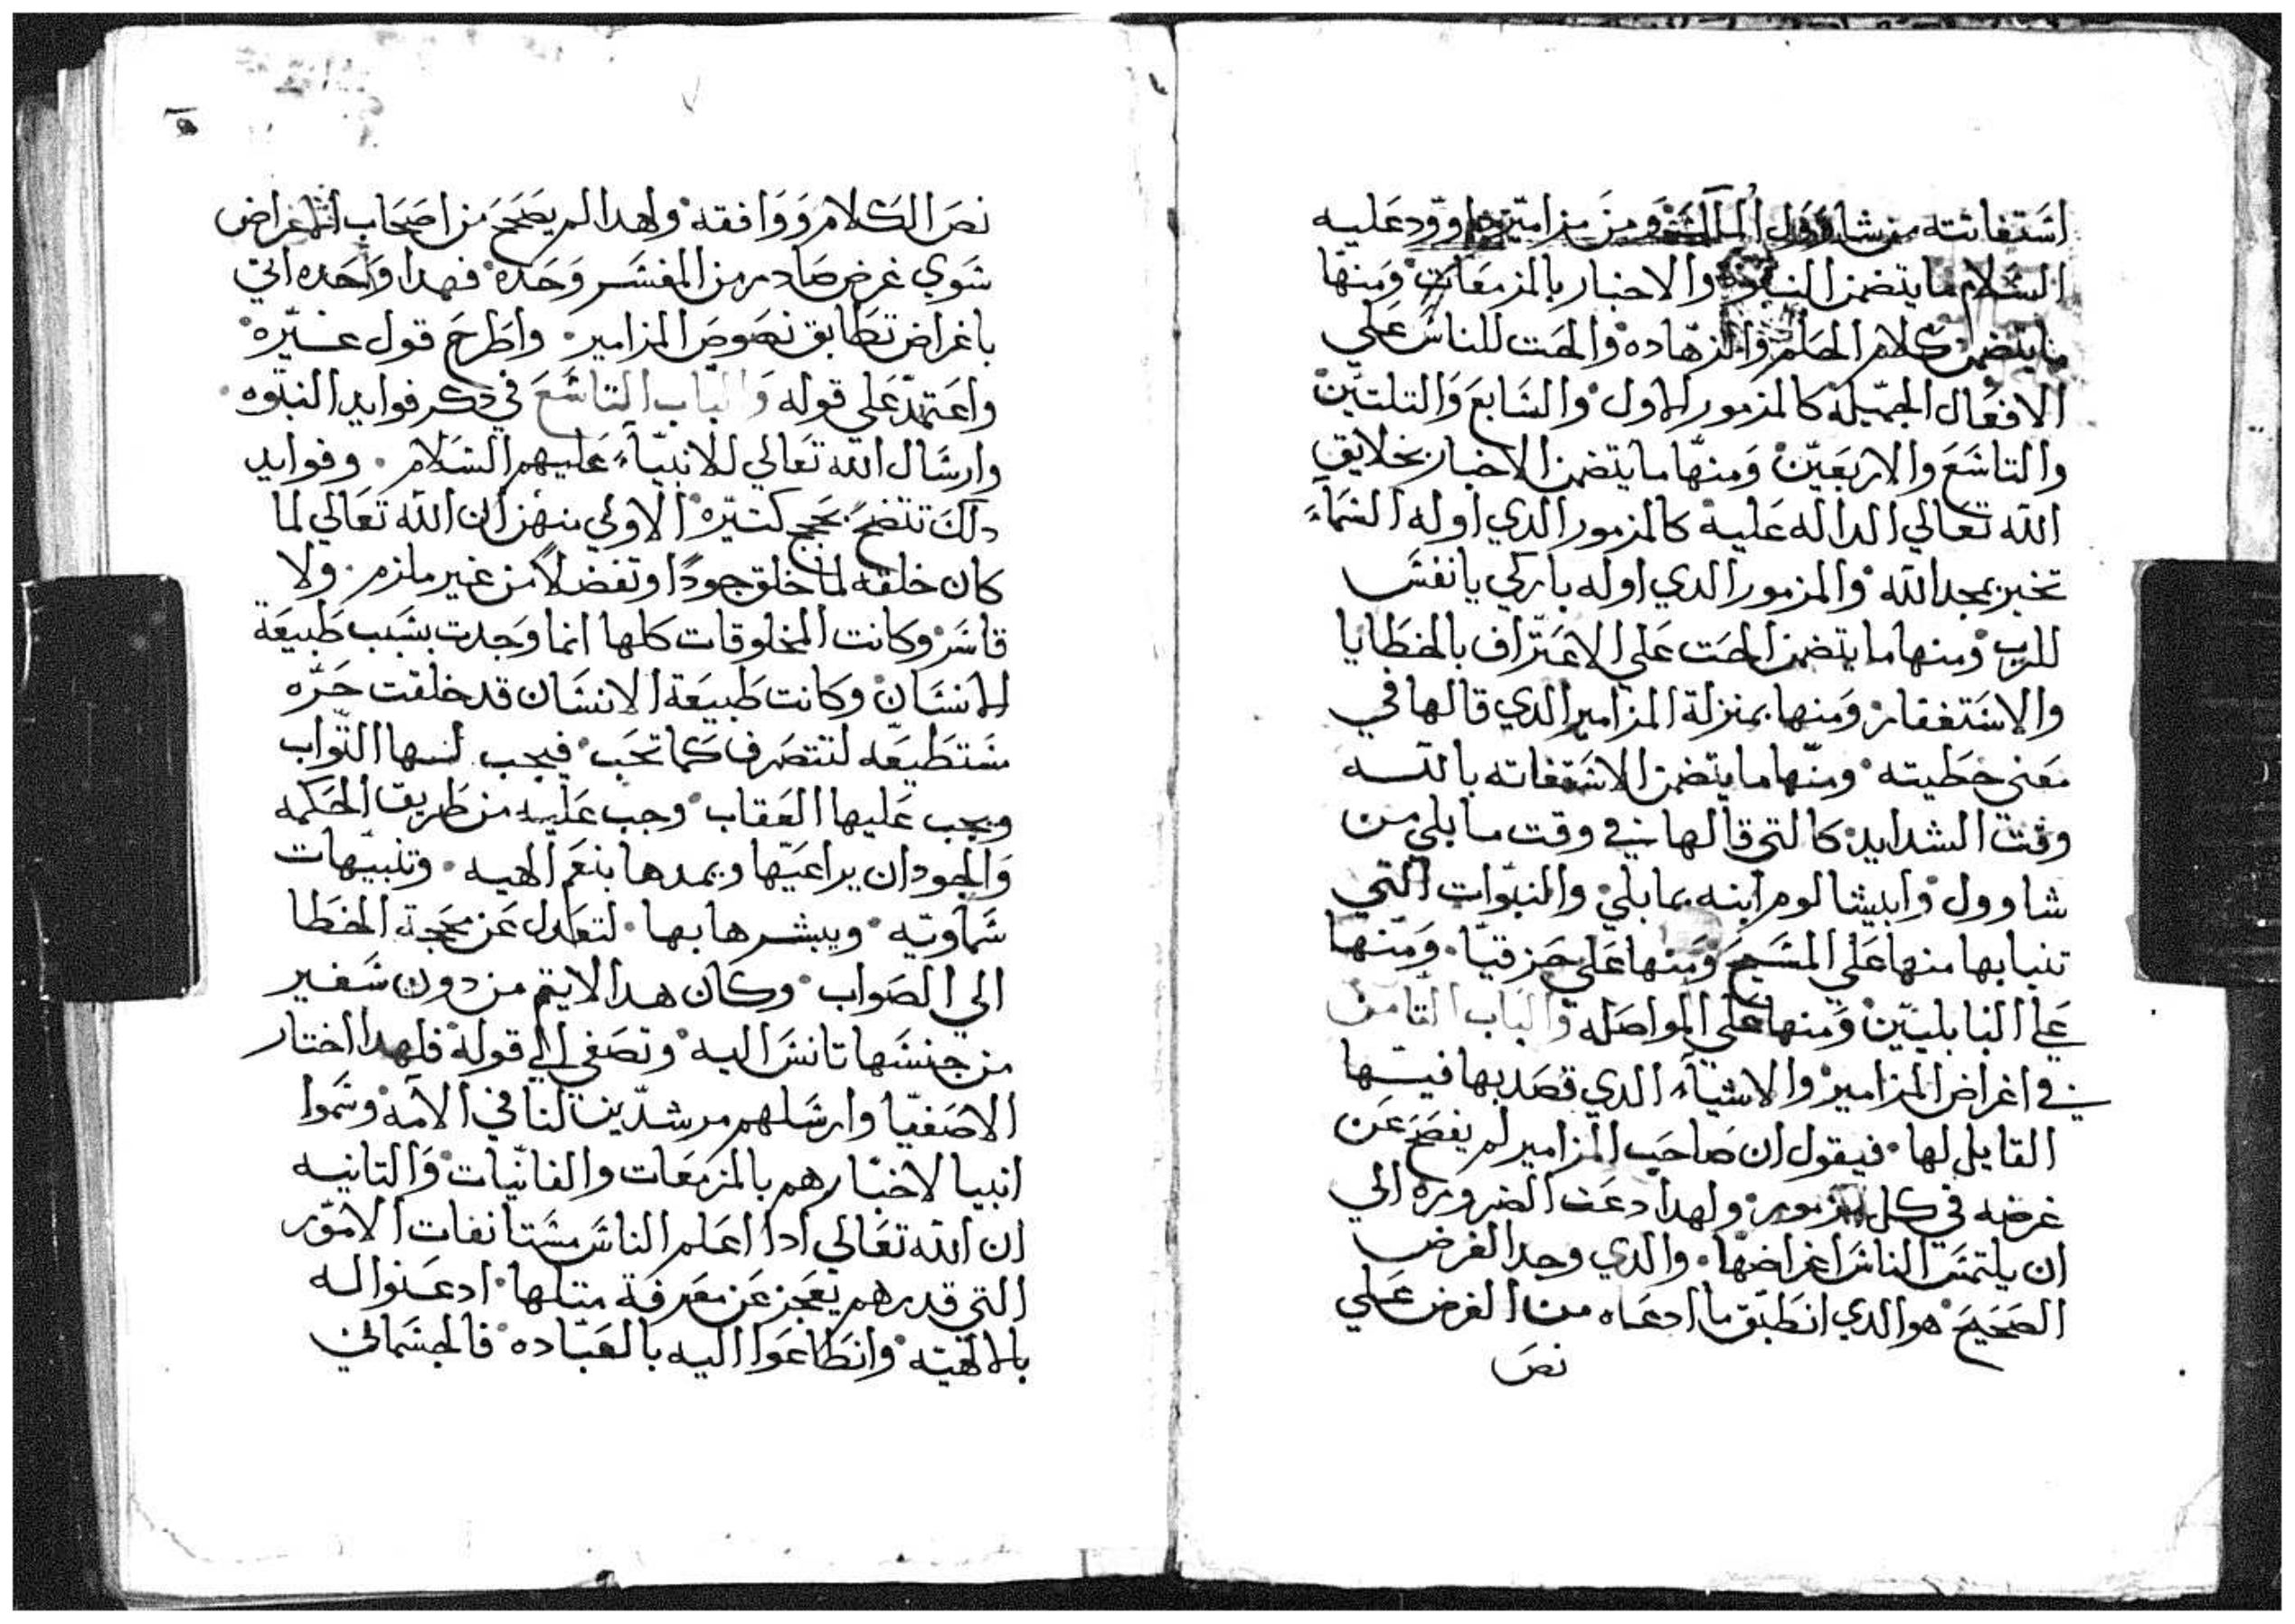 استغاثته من شاوول الملك ومن مزامير داوود عليه
السلام ما يتضمن النبوه والاخبار بالمزمعات ومنها
ما يتضمن كلام الحلم والزهاده والحت للناس علي
الافعال الجميله كالمزمور الاول والسابع والتلتين
والتاسع والاربعين ومنها ما يتضمن الاخبار بخلايق
الله تعالي الداله عليه كالمزمور الدي اوله السماء
تخبر بمجد الله والمزمور الدي اوله باركي يا نفس
للرب ومنها ما يتضمن الحت علي الاعتراف بالخطايا
والاستغفار ومنها بمنزلة المزامير الدي قالها في
معني خطيته ومنها ما يتضمن الاستغاته بالله
وقت الشدايد كالتي قالها في وقت ما بلي من
شاوول وابيشالوم ابنه بما بلي والنبوات التي
تنبا بها منها علي المسيح ومنها علي حزقيا ومنها
علي البابليين ومنها علي المواصله والباب التامن
في اغراض المزامير والاشياء الدي قصد بها فيها
القايل لها فيقول ان صاحب المزامير لم يفصح عن
غرضه في كل مزمور ولهدا دعت الضروره الي
ان يلتمس الناس اغراضها والدي وجد الغرض
الصحيح هو الدي انطبق ما ادعاه من الغرض علي
نص
نص الكلام ووافقه ولهدا لم يصحح من اصحاب الاغراض
سوي غرض صادر من المفسر وحده فهدا وحده اتي
باغراض تطابق نصوص المزامير واطرح قول غيره
واعتمد علي قوله والباب التاسع في دكر فوايد النبوه
وارسال الله تعالي للانبياء عليهم السلام وفوايد
دلك تتضح بحجج كتيره الاولي منهن ان الله تعالي لما
كان خلقه لما خلق جودا وتفضلا من غير ملزم ولا
قاسر وكانت المخلوقات كلها انما وجدت بسبب طبيعة
الانسان وكانت طبيعة الانسان قد خلقت حره
مستطيعه لتتصرف كما تحب فيجب لها التواب
ويجب عليها العقاب وجب عليه من طريق الحكمه
والجود ان يراعيها ويمدها بنعم الهيه وتنبيهات
سماويه ويبشرها بها لتعدل عن محجة الخطا
الي الصواب وكان هدا لا يتم من دون سفير
من جنسها تانس اليه وتصغي الي قوله فلهدا اختار
الاصفيا وارسلهم مرشدين لنا في الامه وسموا
انبيا لاخبارهم بالمزمعات والغايبات والتانيه
ان الله تعالي ادا اعلم الناس مستانفات الامور
التي قدرهم يعجز عن معرفة متلها ادعنوا له
بالالهيه وانطاعوا اليه بالعباده فالجسماني